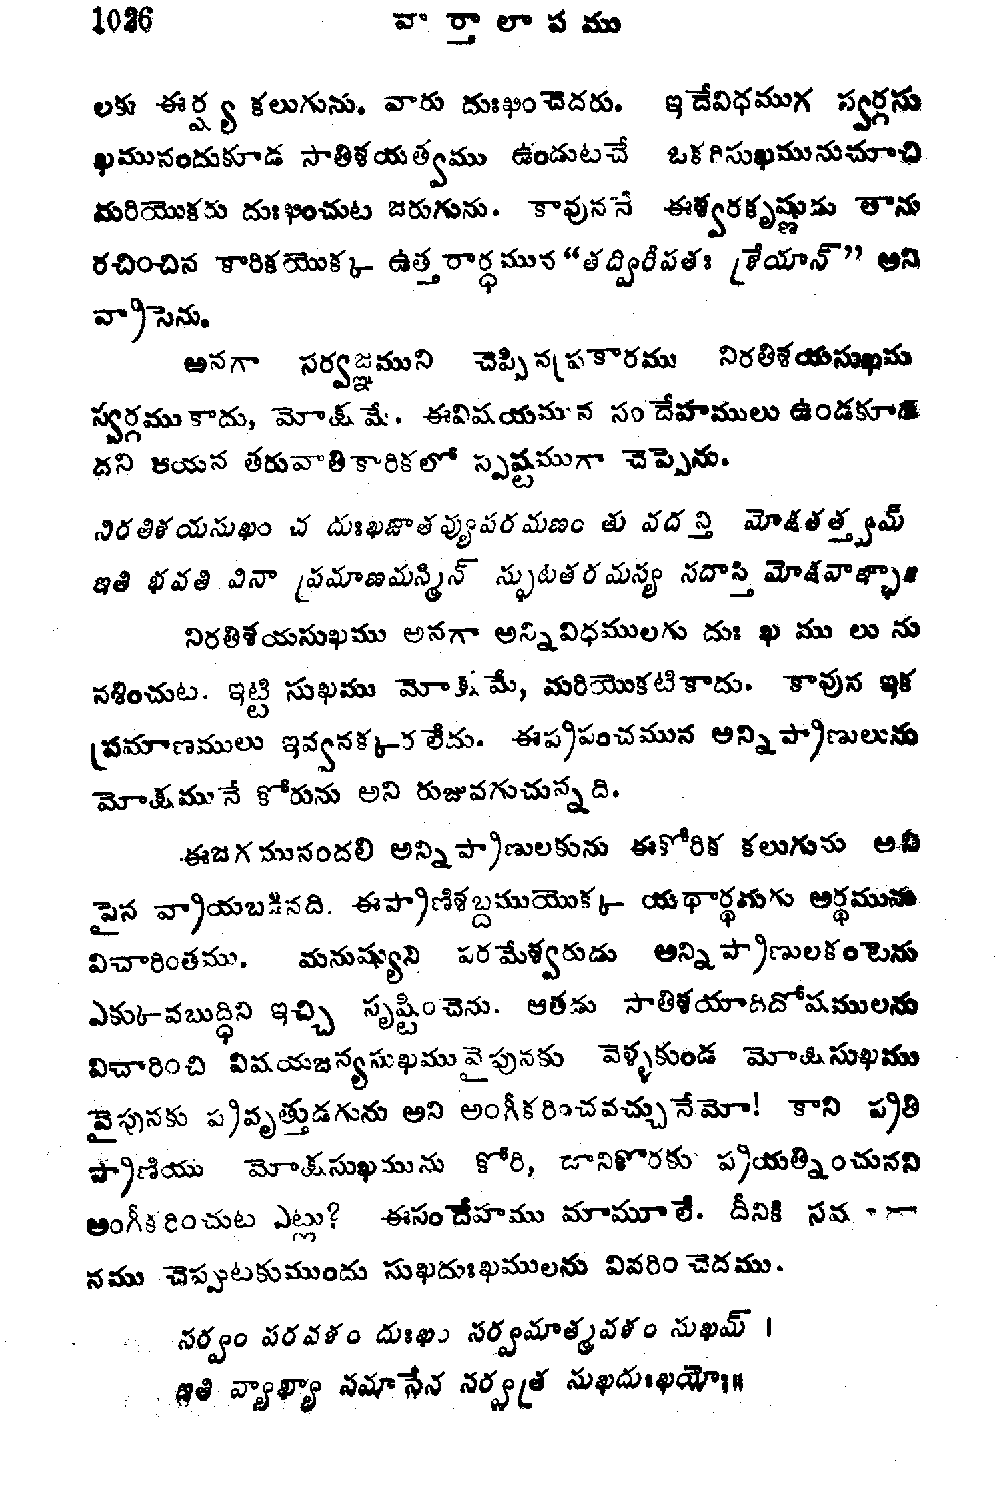 1036 వార్తాలాపము
లకు ఈర్ష్య కలుగును. వారు దుఃఖించెదరు. ఇదేవిధముగ స్వర్గసు
ఖమునందుకూడ సాతిశయత్వము ఉండుటచే ఒకరిసుఖమునుచూచి
మరియొకడు దుఃఖించుట జరుగును. కావుననే ఈశ్వరకృష్ణుడు తాను
రచించిన కారికయొక్క ఉత్తరార్ధమున “తద్విరీపతః శ్రేయాన్” అని
వ్రాసెను.
అనగా సర్వజ్ఞముని చెప్పినప్రకారము నిరతిశయసుఖము
స్వర్గము కాదు, మోక్షమే. ఈవిషయమున సందేహములు ఉండకూడ
దని ఆయన తరువాతికారికలో స్పష్టముగా చెప్పెను.
నిరతిశయసుఖం చ దుఃఖజాతవ్యుపరమణం తు వదన్తి మోక్షతత్త్వమ్
ఇతి భవతి వినా ప్రమాణమస్మిన్ స్ఫుటతరమస్య సదాస్తి మోక్షవాఞ్ఛా॥
నిరతిశయసుఖము అనగా అన్నివిధములగు దుఃఖములును
నశించుట. ఇట్టి సుఖము మోక్షమే, మరియొకటికాదు. కావున ఇక
ప్రమాణములు ఇవ్వనక్కరలేదు. ఈప్రపంచమున అన్నిప్రాణులును
మోక్షమునే కోరును అని రుజువగుచున్నది.
ఈజగమునందలి అన్నిప్రాణులకును ఈకోరిక కలుగును అని
పైన వ్రాయబడినది. ఈప్రాణిశబ్దముయొక్క యథార్థమగు అర్థమును
విచారింతము. మనుష్యుని పరమేశ్వరుడు అన్నిప్రాణులకంటెను
ఎక్కువబుద్ధిని ఇచ్చి సృష్టించెను. ఆతడు సాతిశయాదిదోషములను
విచారించి విషయజన్యసుఖమువైపునకు వెళ్ళకుండ మోక్షసుఖము
వైపునకు ప్రవృత్తుడగును అని అంగీకరించవచ్చునేమో! కాని ప్రతి
ప్రాణియు మోక్షసుఖమును కోరి, దానికొరకు ప్రయత్నించునని
అంగీకరించుట ఎట్లు? ఈసందేహము మామూలే. దీనికి సమా
నము చెప్పుటకుముందు సుఖదుఃఖములను వివరించెదము.
సర్వం పరవశం దుఃఖం సర్వమాత్మవశం సుఖమ్ |
ఇతి వ్యాఖ్యా సమాసేన సర్వత్ర సుఖదుఃఖయోః॥